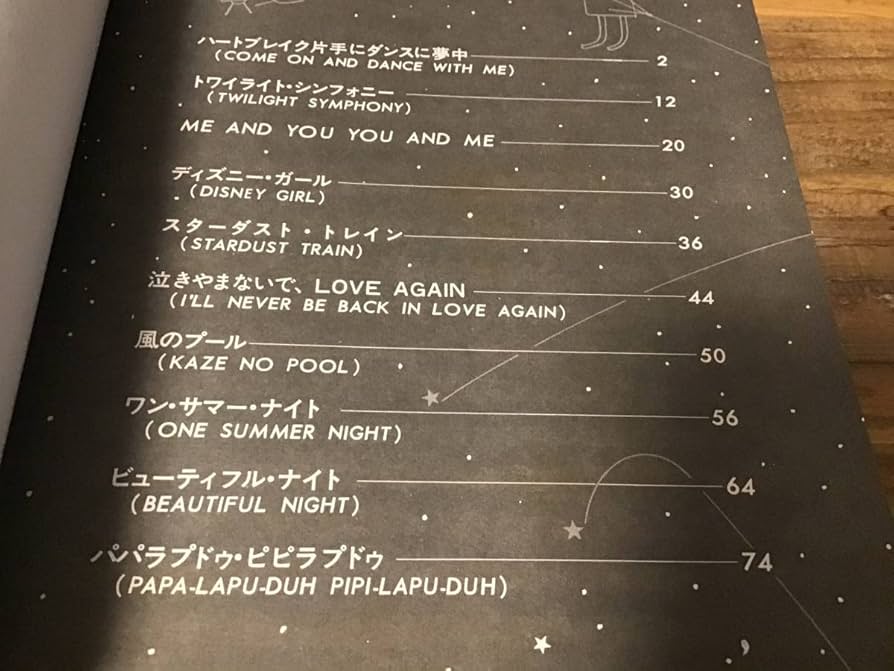 ハートブレイク片手にダンスに夢中 2
(COME ON AND DANCE WITH ME)
トワイライト・シンフォニー 12
(TWILIGHT SYMPHONY)
ME AND YOU YOU AND ME 20
ディズニー・ガール 30
(DISNEY GIRL)
スターダスト・トレイン 36
(STARDUST TRAIN)
泣きやまないで、LOVE AGAIN 44
(I'LL NEVER BE BACK IN LOVE AGAIN)
風のプール 50
(KAZE NO POOL)
ワン・サマー・ナイト 56
(ONE SUMMER NIGHT)
ビューティフル・ナイト 64
(BEAUTIFUL NIGHT)
パパラプドゥ・ピピラプドゥ 74
(PAPA-LAPU-DUH PIPI-LAPU-DUH)